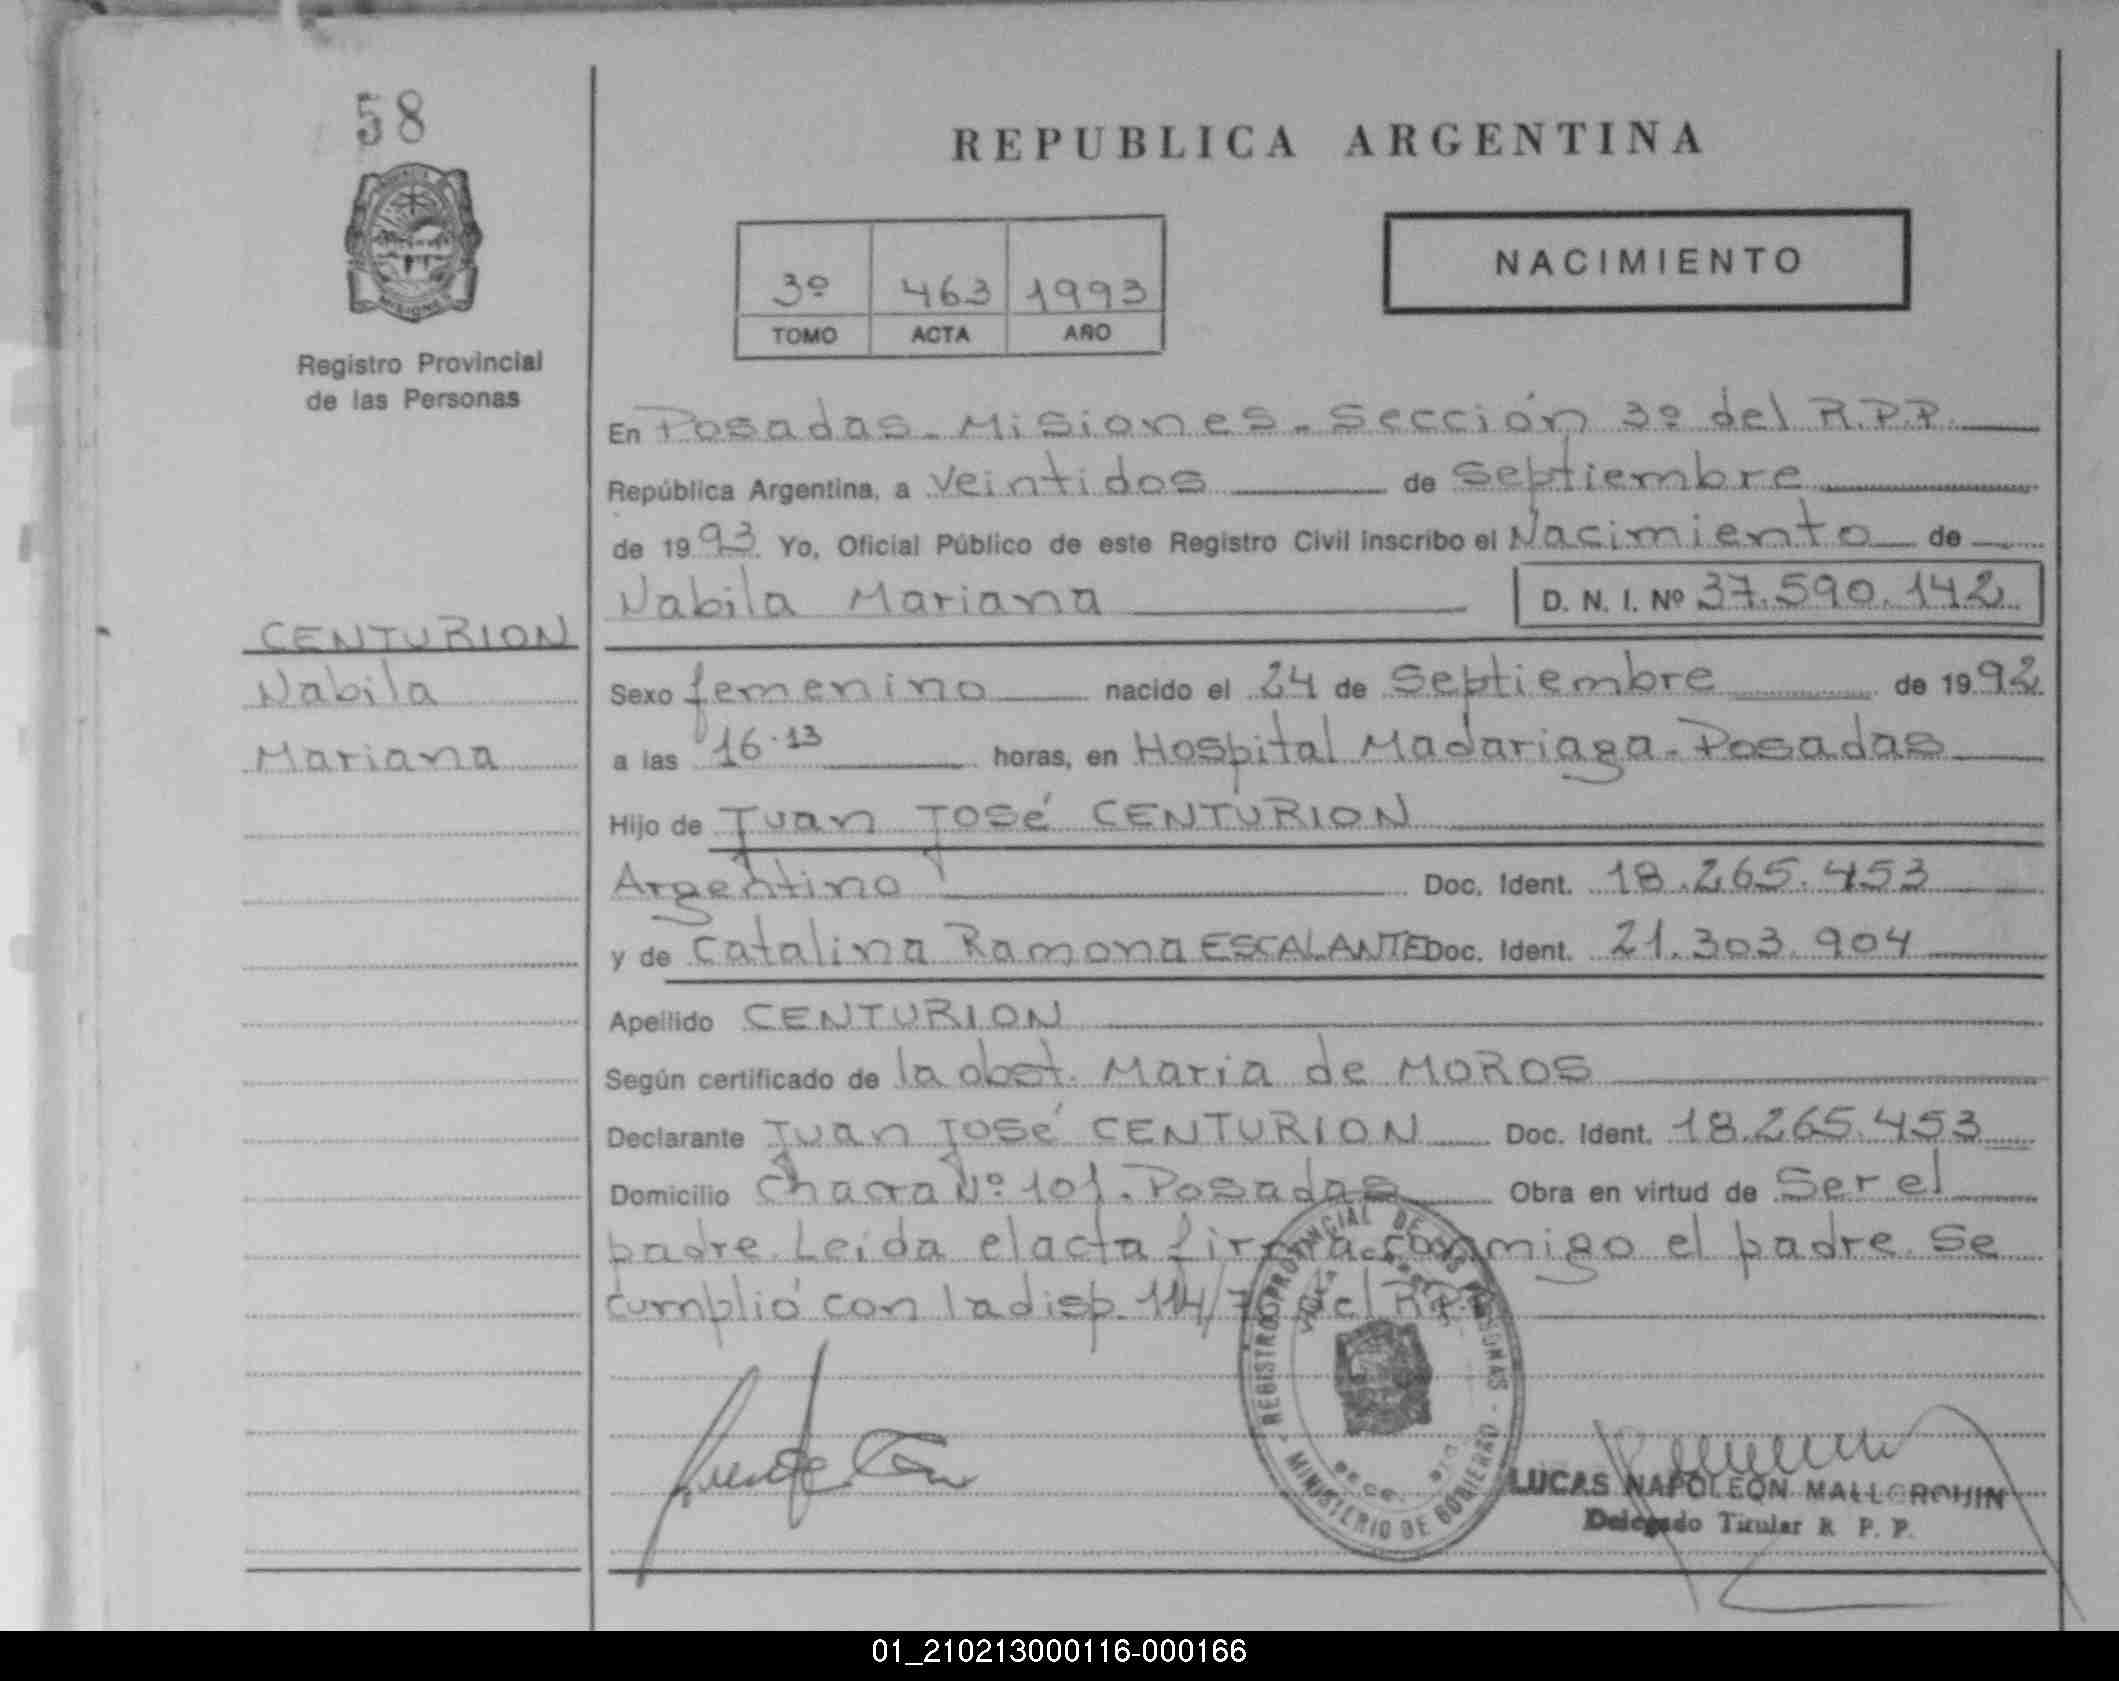 58
REPUBLICA ARGENTINA
NACIMIENTO
3º 463 1993
TOMO ACTA AÑO
Registro Provincial
de las Personas
En Posadas - Misiones - Sección 3º del R.P.P.
República Argentina, a veintidos de Septiembre
de 1993. Yo, Oficial Público de este Registro Civil inscribo el Nacimiento de
Nabila Mariana D. N. I. Nº 37.590.142
CENTURION
Nabila
Mariana
Sexo femenino nacido el 24 de Septiembre de 1992
a las 16.13 horas, en Hospital Madariaga - Posadas
Hijo de Juan José CENTURION
Argentino Doc. Ident. 18.265.453
y de Catalina Ramona ESCALANTE Doc. Ident. 21.303.904
Apellido CENTURION
Según certificado de la obst. Maria de MOROS
Declarante Juan José CENTURION Doc. Ident. 18.265.453
Domicilio Chacra Nº 101. Posadas Obra en virtud de Ser el
padre. Leída el acta firma conmigo el padre. Se
cumplió con la disp. 114/ del R.P.P.
REGISTRO PROVINCIAL DE LAS PERSONAS
MINISTERIO DE GOBIERNO
LUCAS NAPOLEON
Delegado Titular R. P. P.
01_210213000116-000166